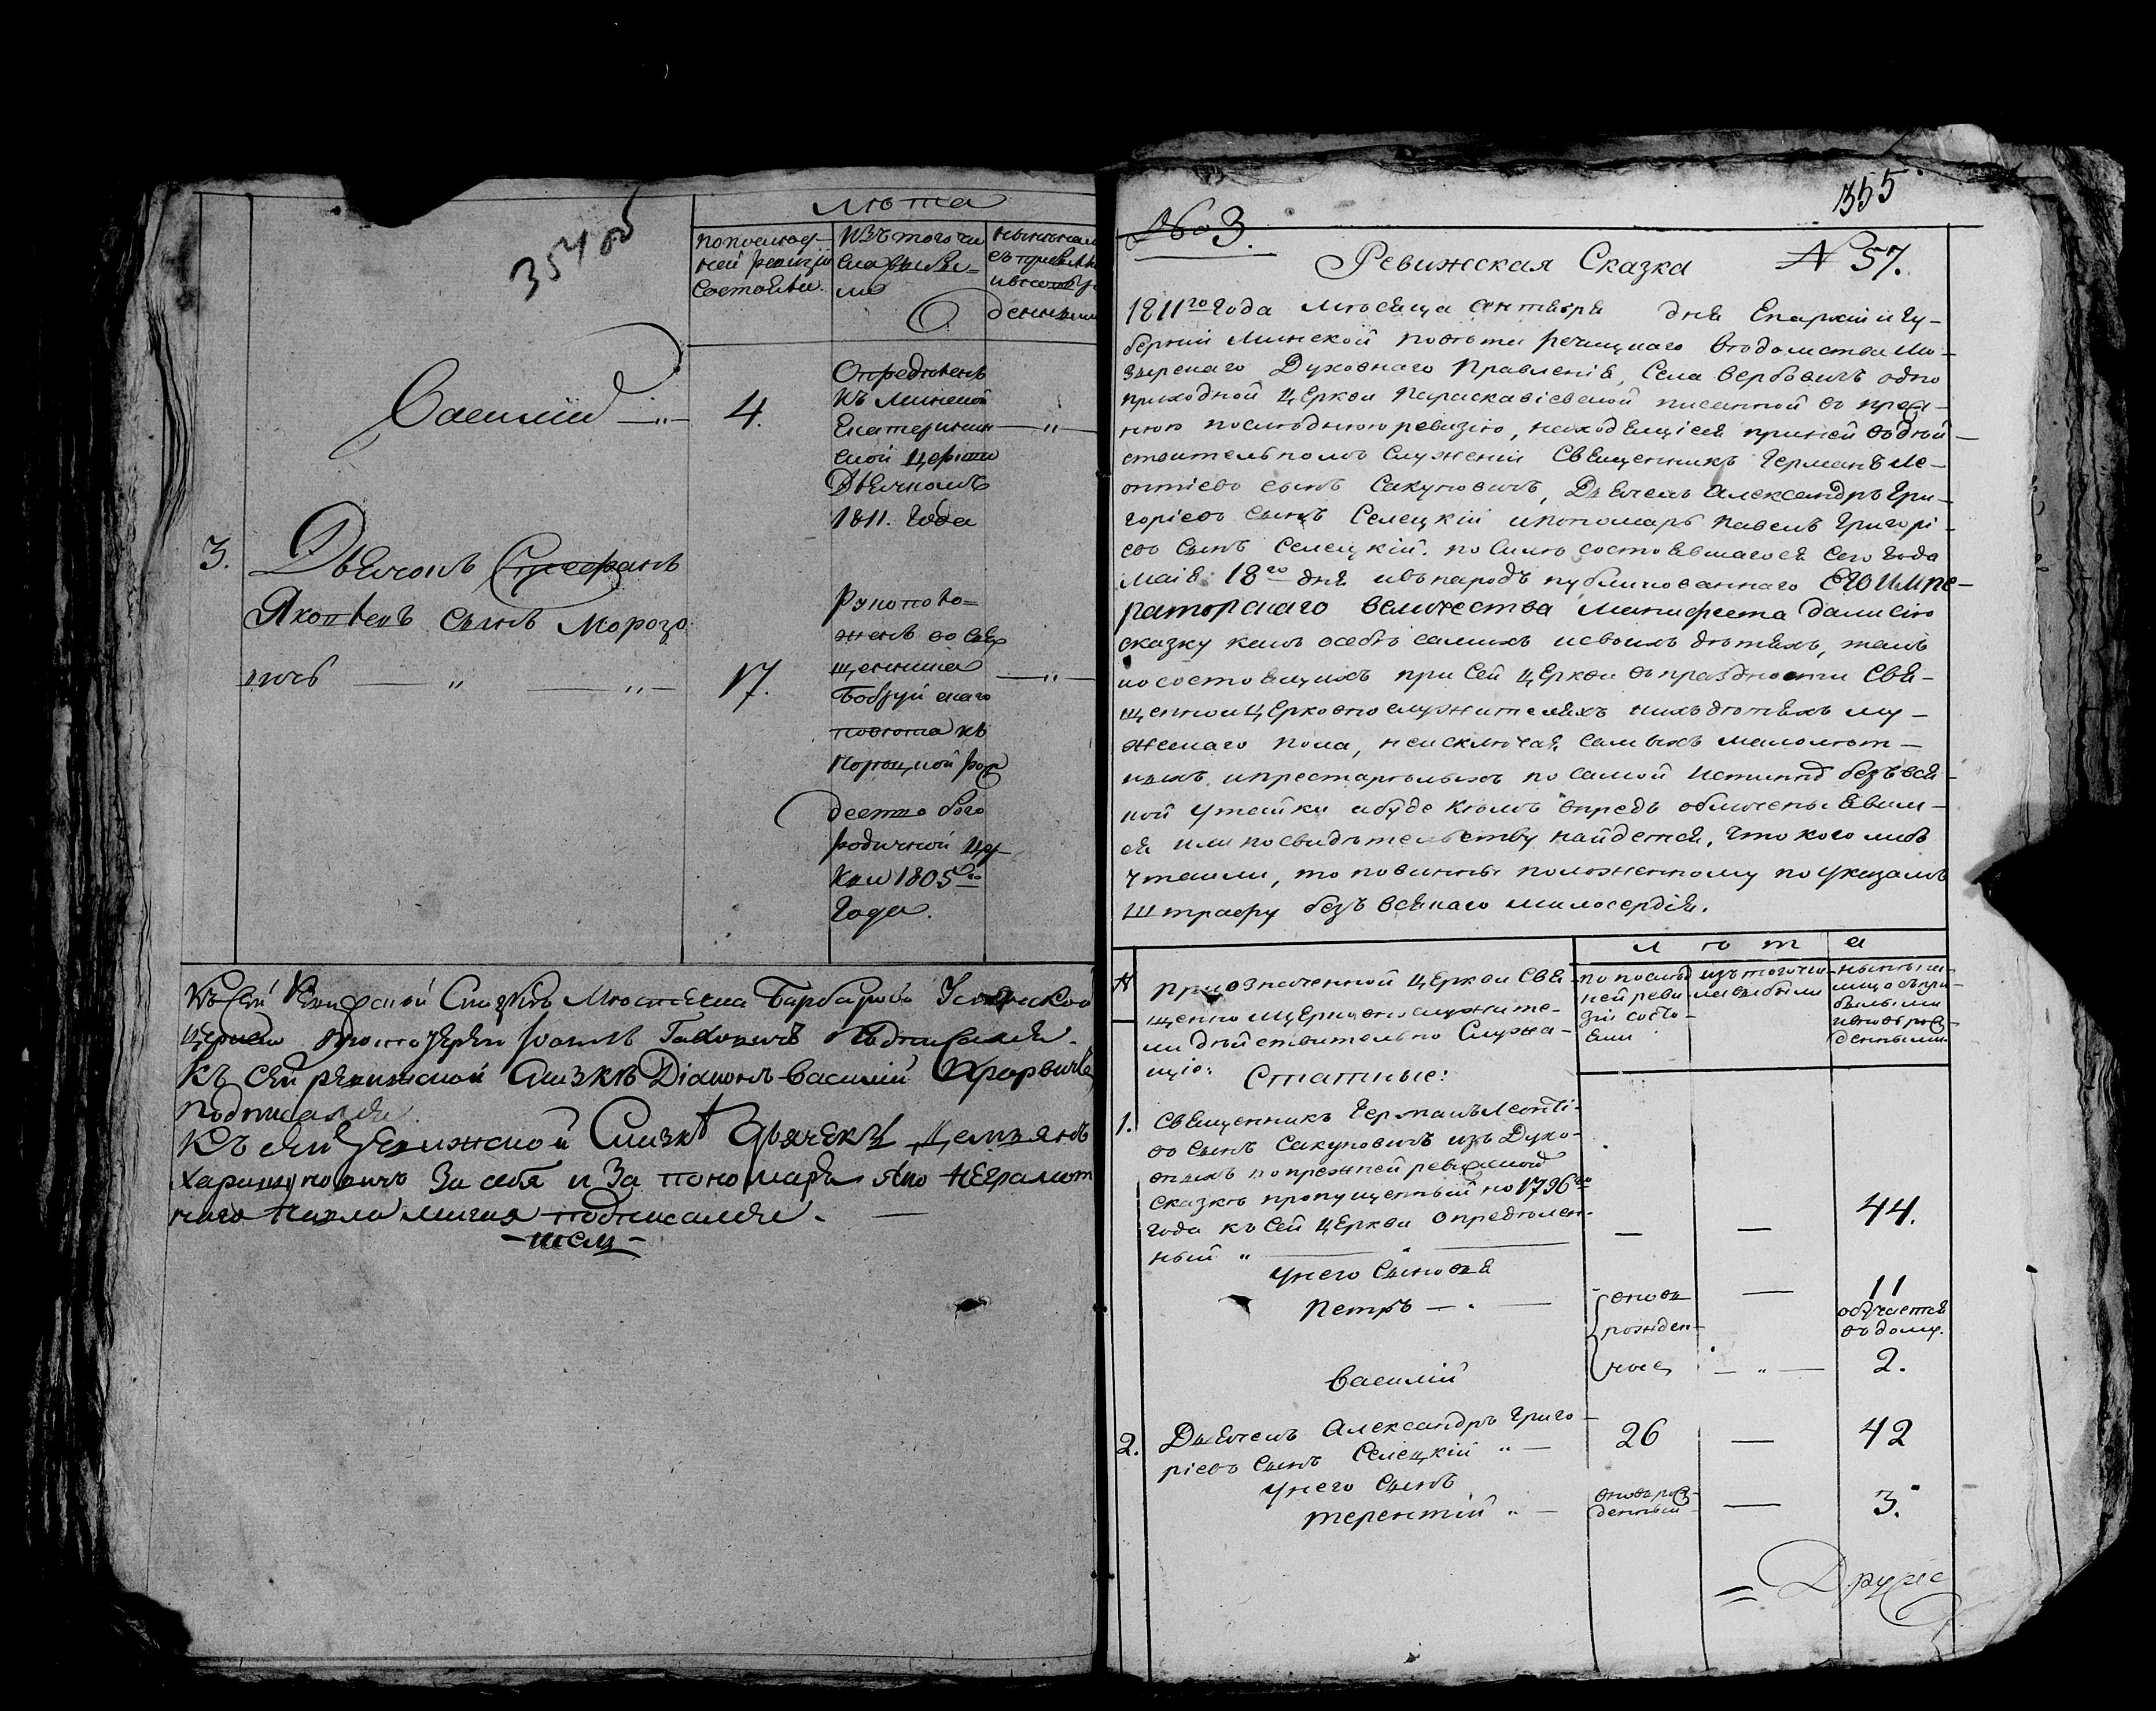 354 об
Лѣта
по послѣд-
ней ревизіи
состояли.
Изъ того чи
сла выбы-
ло
Василій
4.
Опредѣленъ
къ Минской
Екатеринин
ской церкви
Дьячкомъ
1811. Года
3. Дьячокъ Стефанъ
Яковлевъ сынъ Морозо
вичь
17.
Рукополо-
женъ во свя
щенника
Бобруйскаго
повѣта къ
рож
дество Бого
родичной цер
кви 1805го
Года.
Къ сей Ревижской Сказкѣ Мѣстечка Барбарова Успенской
церкви Іоаннъ подписался.
Къ сей ревижской Сказкѣ Діаконъ Василій
подписался
Къ сей ревижской Сказкѣ дьячекъ Демьянъ
за себя и за пономаря яко неграмот
наго подписался.
355
No 3.
Ревижская Сказка N 57.
1811го года мѣсяца сентября дня Епархіи и Гу-
берніи Минской повѣта Речицкаго вѣдомства Мо-
зырскаго Духовнаго Правленія, Села Вербовичъ одно
приходной церкви Параскавіевской писанной въ пред-
нюю послѣднюю ревизію, находящіеся при ней въ дѣй-
ствительномъ служеніи Священникъ Германъ Ле-
онтіевъ сынъ Сакуновичъ, Дьячекъ Александръ Гри-
горіевъ сынъ Селецкій и пономарь Павелъ Григорі-
евъ сынъ Селецкій. по силѣ состоявшагося сего года
маія 18го дня и въ народъ публикованнаго Его Импе-
раторскаго Величества Манифеста дали сію
сказку какъ о себѣ самихъ и своихъ дѣтяхъ, такъ
и о состоящихъ при сей церкви въ праздности Свя-
щенно и церковнослужителяхъ и ихъ дѣтяхъ му-
жескаго пола, не исключая самыхъ малолѣт-
ныхъ и престарѣлыхъ по самой истиннѣ безъ вся-
кой утайки а буде кѣмъ впредь обличены явим-
ся или по свидѣтельству найдется, что кого либо
утаили, то повинны положенному по указамъ
штрафу безъ всякаго милосердія.
лѣта
N
При означенной церкви Свя
щенно и церковнослужите-
ли дѣйствительно Служа-
щіе:
по послѣд
ней реви
зіи состо-
яли
изъ того чи
сла выбыли
нынѣ на
лицо съ при
былыми
и вновь рож
денными
Статные:
1. Священникъ Германъ Леонті-
въ сынъ Сакуновичъ изъ Духо-
вныхъ по прежней ревижской
сказкѣ пропущенный но 1796го
года къ сей церкви опредѣлен-
ный
—
—
44.
у него Сыновья
Петръ
вновь
рожден-
ные
—
11
обучается
въ дому.
Василій
—
2.
2. Дьячекъ Александръ Григо-
ріевъ сынъ Селецкій
26
—
42
у него сынъ
Терентій
вновь рож-
денный
—
3.